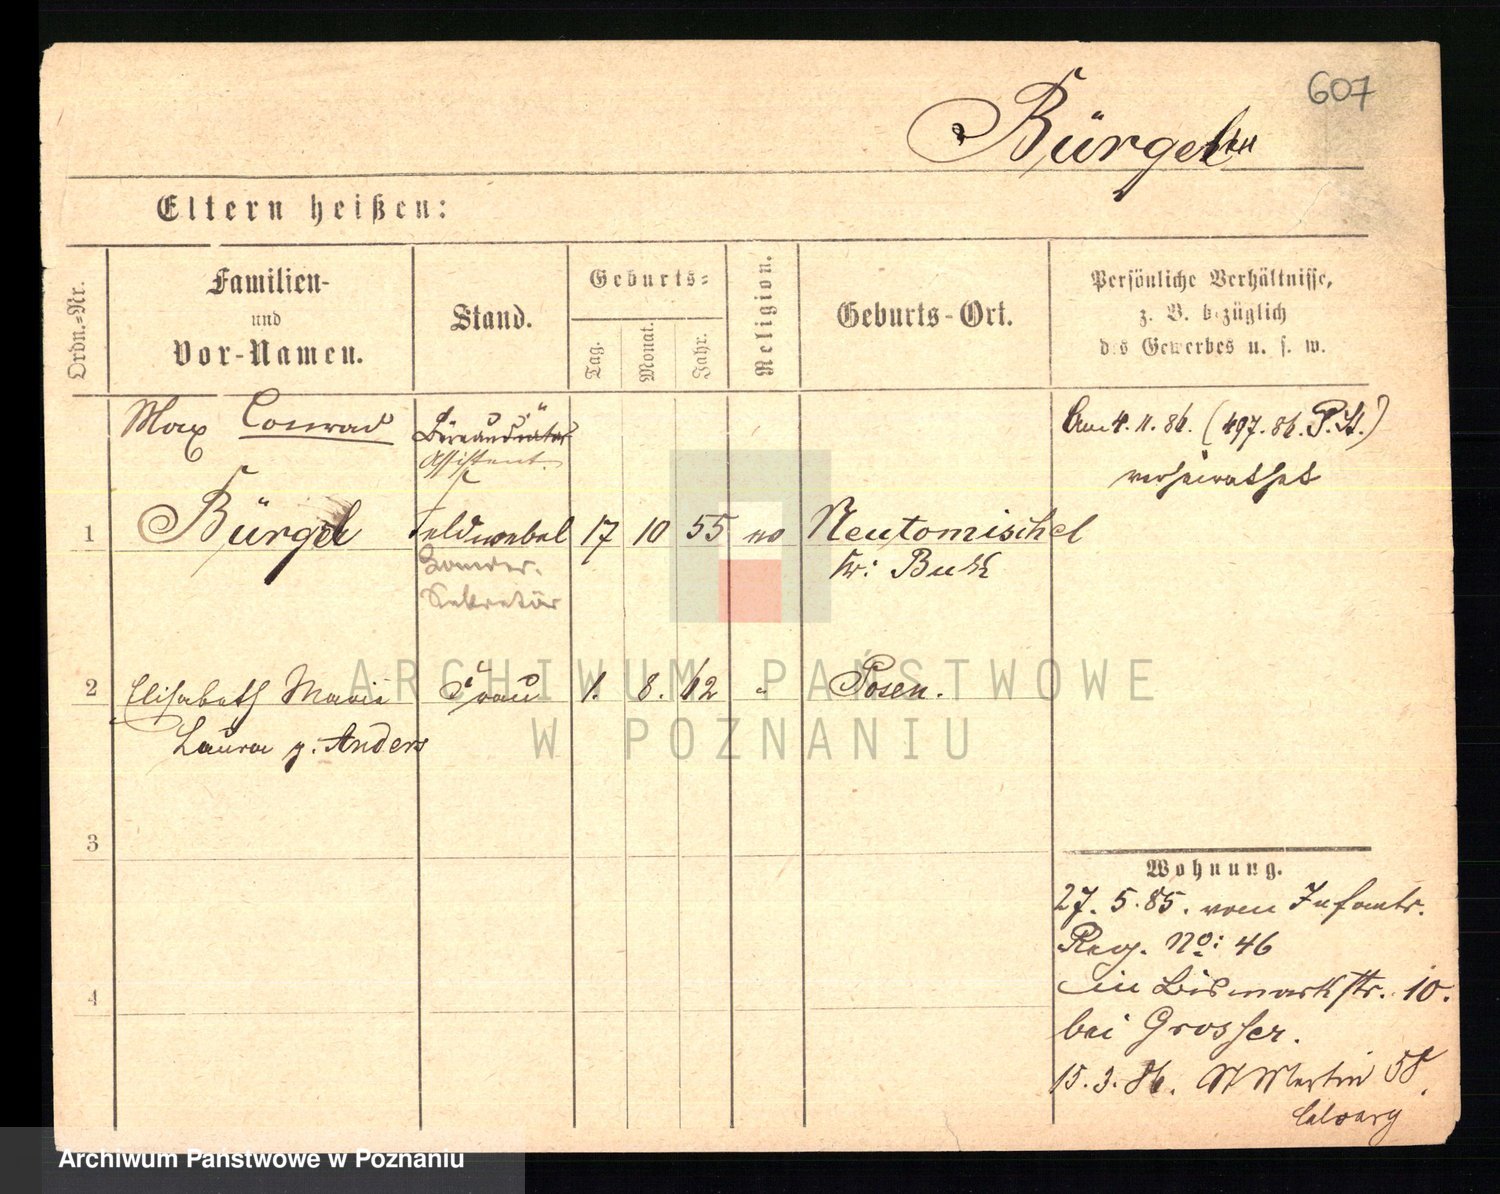 607
Bürgel
Eltern heißen:
Ordn.-Nr.
Familien-
und
Vor-Namen.
Stand.
Geburts-
Tag.
Monat.
Jahr.
Religion.
Geburts-Ort.
Persönliche Verhältnisse,
z. B. bezüglich
des Gewerbes u. s. w.
Max Conrad
Assistent.
Am 4. 11. 86. (497. 86. P. St.)
verheirathet
1 Bürgel Feldwebel 17 10 55 Neutomischel
Kr: Bukk
Sekretär
2 Elisabeth Marie Frau 1. 8. 62 " Posen.
Laura g. Anders
3
4
Wohnung.
27. 5. 85. vom Infantr.
Reg. No: 46
in Bismarkstr. 10.
bei Grosser.
15. 3. 86. St Martin 58.
Calvary
ARCHIWUM PAŃSTWOWE
W POZNANIU
Archiwum Państwowe w Poznaniu